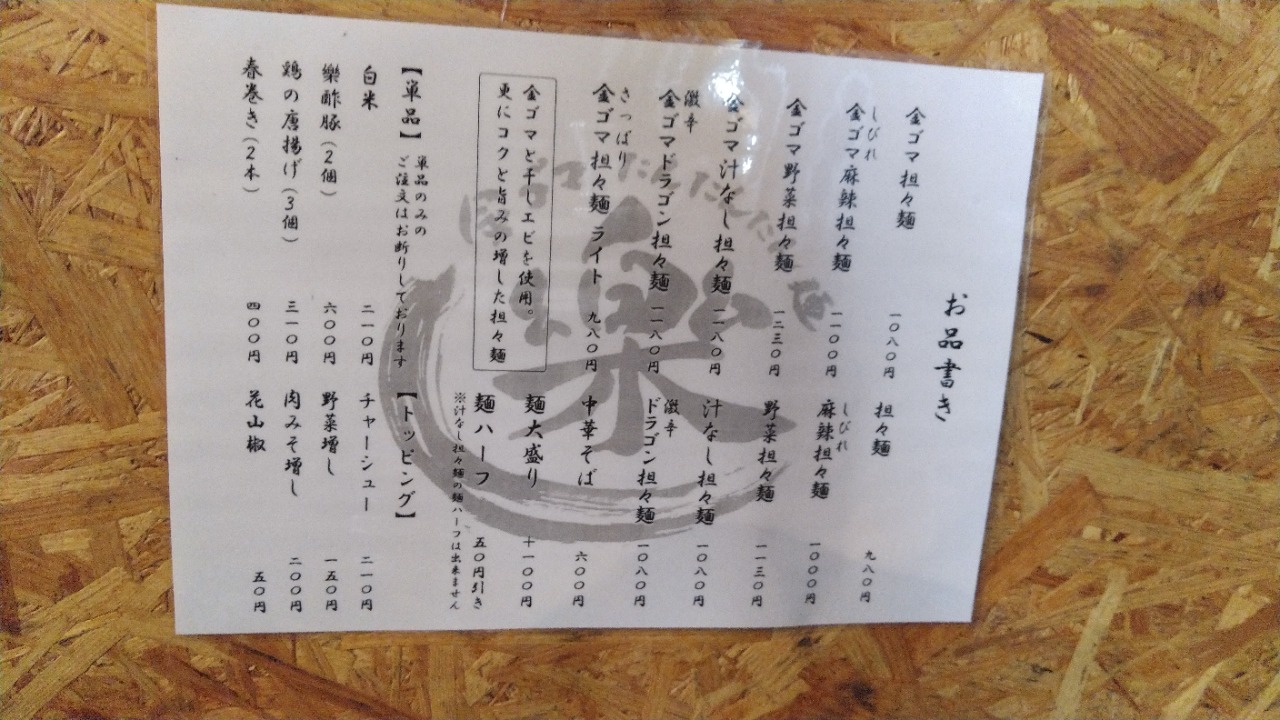 お品書き
金ゴマ担々麺 一〇八〇円
しびれ
金ゴマ麻辣担々麺 一一〇〇円
金ゴマ野菜担々麺 一二三〇円
金ゴマ汁なし担々麺 一一八〇円
激辛
金ゴマドラゴン担々麺 一一八〇円
さっぱり
金ゴマ担々麺 ライト 九八〇円
金ゴマと干しエビを使用。
更にコクと旨みの増した担々麺
担々麺 九八〇円
しびれ
麻辣担々麺 一〇〇〇円
野菜担々麺 一一三〇円
汁なし担々麺 一〇八〇円
激辛
ドラゴン担々麺 一〇八〇円
中華そば 六〇〇円
麺大盛り +一〇〇円
麺ハーフ 五〇円引き
※汁なし担々麺の麺ハーフは出来ません
【単品】
単品のみの
ご注文はお断りしております
白米 二一〇円
樂酢豚(2個) 六〇〇円
鶏の唐揚げ(3個) 三一〇円
春巻き(2本) 四〇〇円
【トッピング】
チャーシュー 二一〇円
野菜増し 一五〇円
肉みそ増し 二〇〇円
花山椒 五〇円
樂